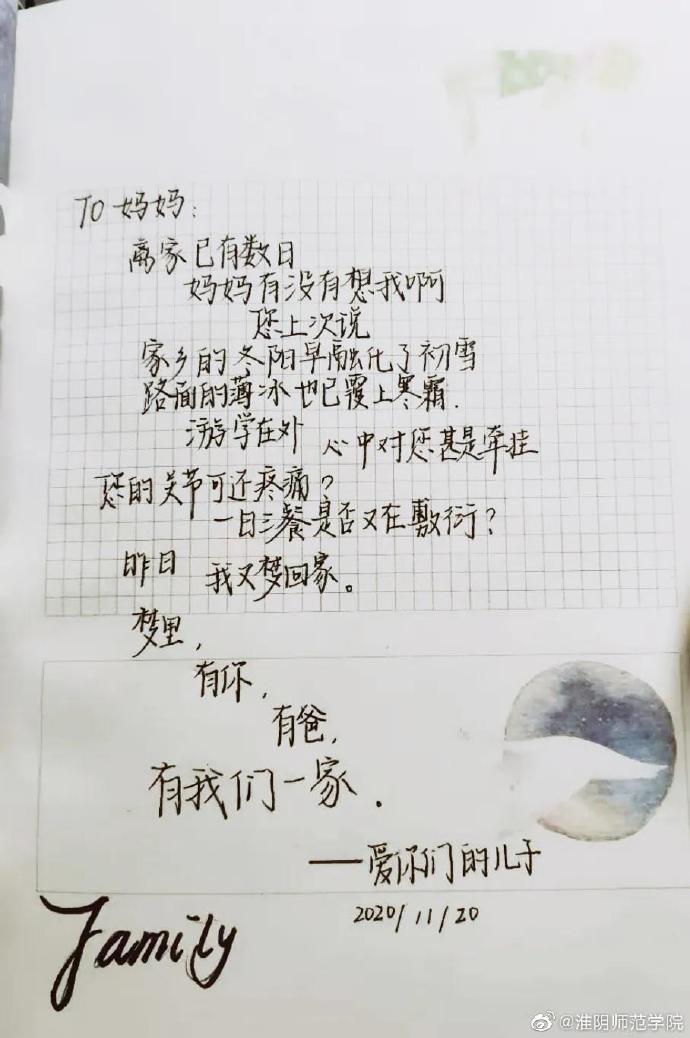 TO 妈妈:
离家已有数日
妈妈有没有想我啊
您上次说
家乡的冬阳早融化了初雪
路面的薄冰也已覆上寒霜.
游学在外 心中对您甚是牵挂
您的关节可还疼痛?
一日三餐是否又在敷衍?
昨日 我又梦回家。
梦里,
有你,
有爸,
有我们一家.
——爱你们的儿子
2020/11/20
Family
@淮阴师范学院